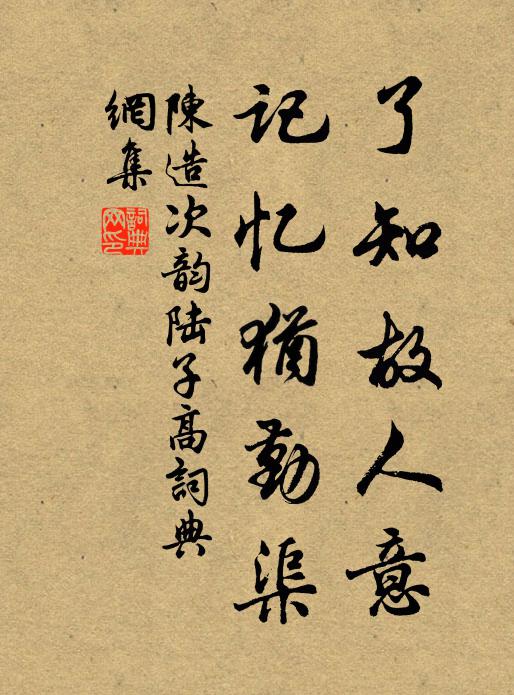 了知故人意
记忆猶勤渠
陳造次韵陆子高詞典
網集
詞典網印